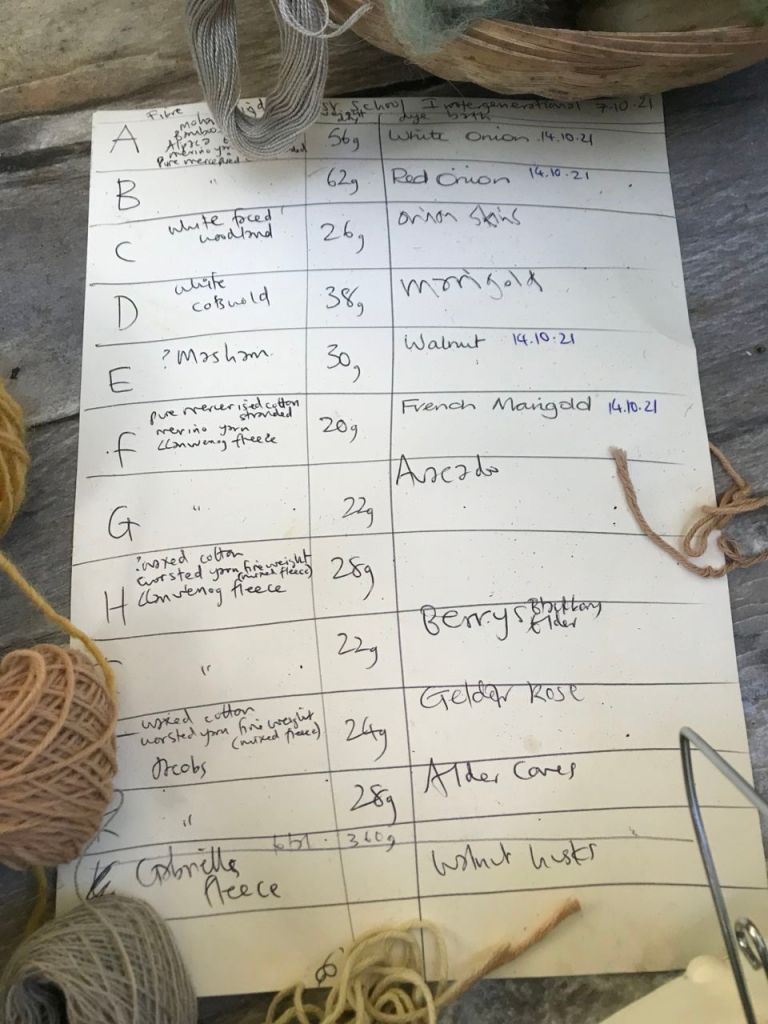 Fibre School Intergenerational 7.10.21
dye bath
A 56g White Onion 14.10.21
merino
Pure mercerised
B " 62g Red Onion 14.10.21
C White faced woodland 26g onion skins
D White cotswold 38g marigold
E ? Masham 30g Walnut 14.10.21
F pure mercerised cotton 20g French Marigold 14.10.21
stranded
merino yarn
Llanwenog fleece
G " 22g Avacado
H ?waxed cotton 28g
worsted yarn fine weight
(mixed fleece)
Llanwenog fleece
" 22g Berrys
Elder
waxed cotton 24g Gelder Rose
worsted yarn fine weight
(mixed fleece)
Jacobs
" 28g Alder Cones
360g
Gabrielle fleece Walnut husks